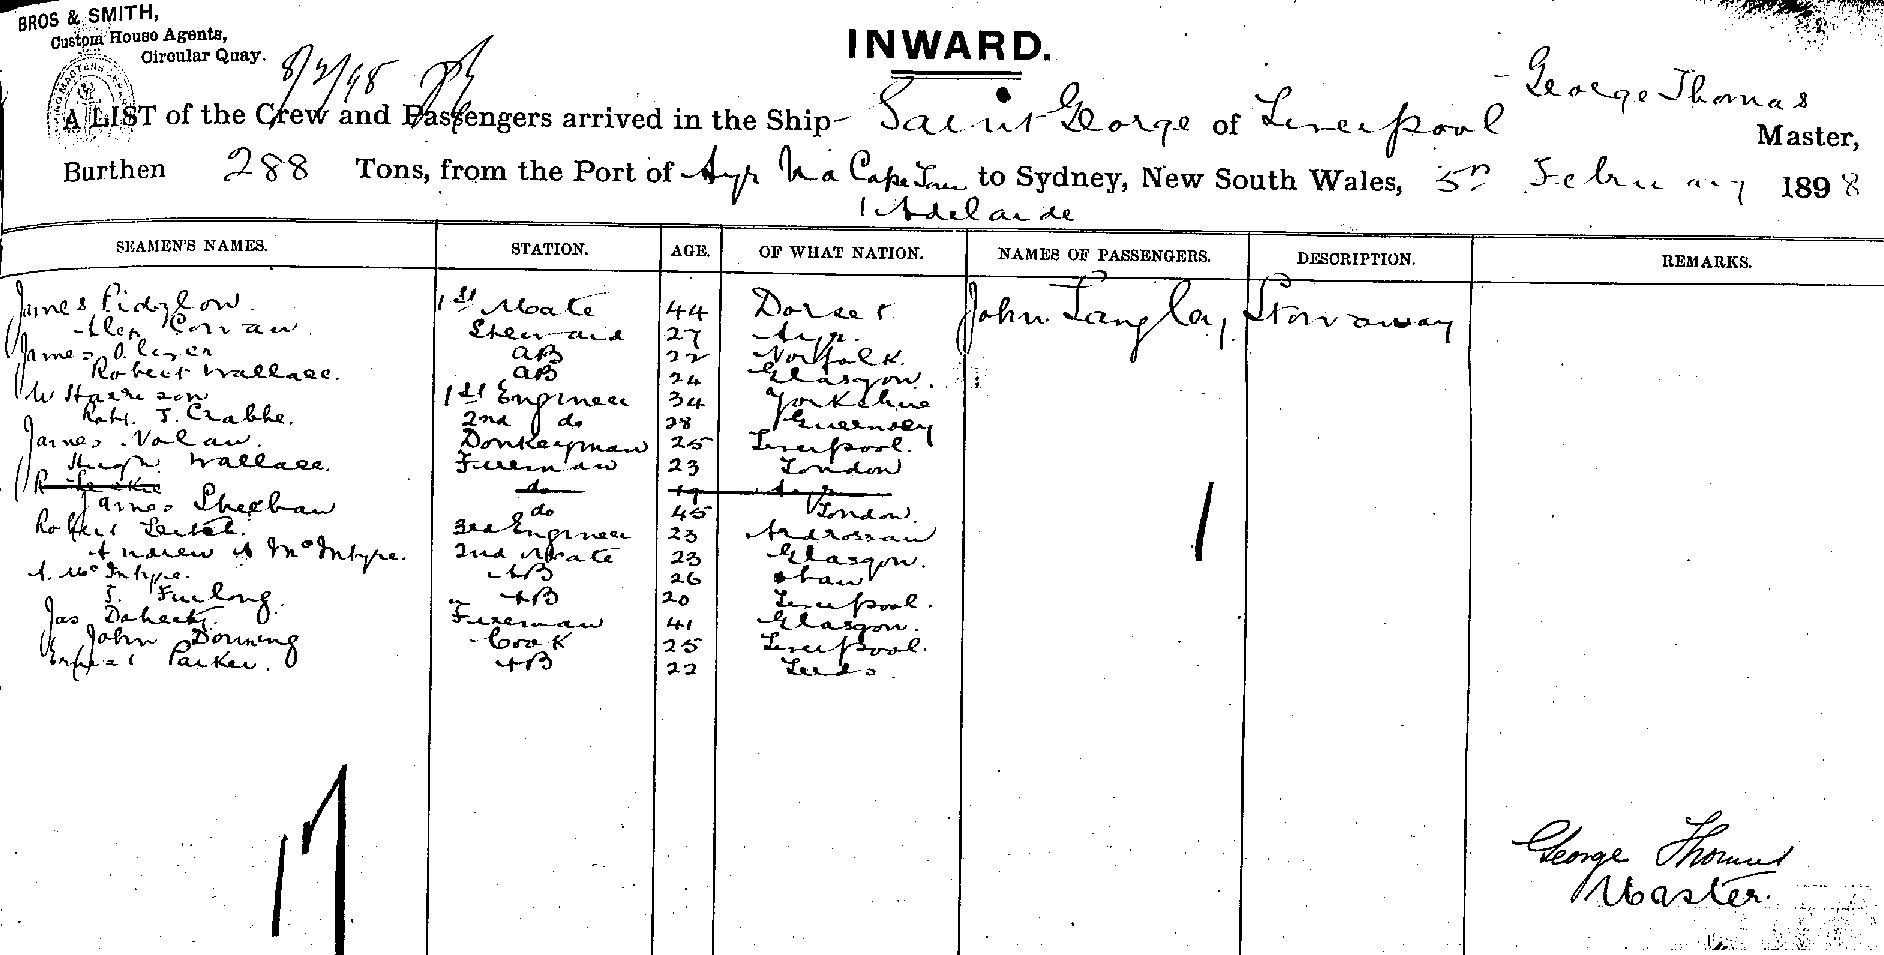 BROS & SMITH,
Custom House Agents,
Circular Quay.
8/2/98
INWARD.
George Thomas
A LIST of the Crew and Passengers arrived in the Ship Saint George of Liverpool Master,
Burthen 288 Tons, from the Port of Ayr Via Cape Town to Sydney, New South Wales, 5th February 1898
Adelaide
SEAMEN'S NAMES. STATION. AGE. OF WHAT NATION. NAMES OF PASSENGERS. DESCRIPTION. REMARKS.
James Pidglow. 1st Mate 44 Dorset John Langley Stowaway
Alex Cowan Steward 27 Ayr.
James Oliver AB 22 Norfolk.
Robert Wallace. AB 24 Glasgow.
W Harrison 1st Engineer 34 Yorkshire
Robt. J. Crabbe. 2nd do 28 Guernsey
James Nolan. Donkeyman 25 Liverpool.
Hugh Wallace. Fireman 23 London
R do 19 Ayr
James Sheehan do 45 London.
Robert 3rd Engineer 23 Ardrossan
Andrew A McIntyre. 2nd Mate 23 Glasgow.
A. McIntyre. AB 26 Oban
J. Furlong. AB 20 Liverpool.
Jas Doherty. Fireman 41 Glasgow.
John Downing Cook 25 Liverpool.
Ernest Parker. AB 22 Leeds.
1
17
George Thomas
Master.